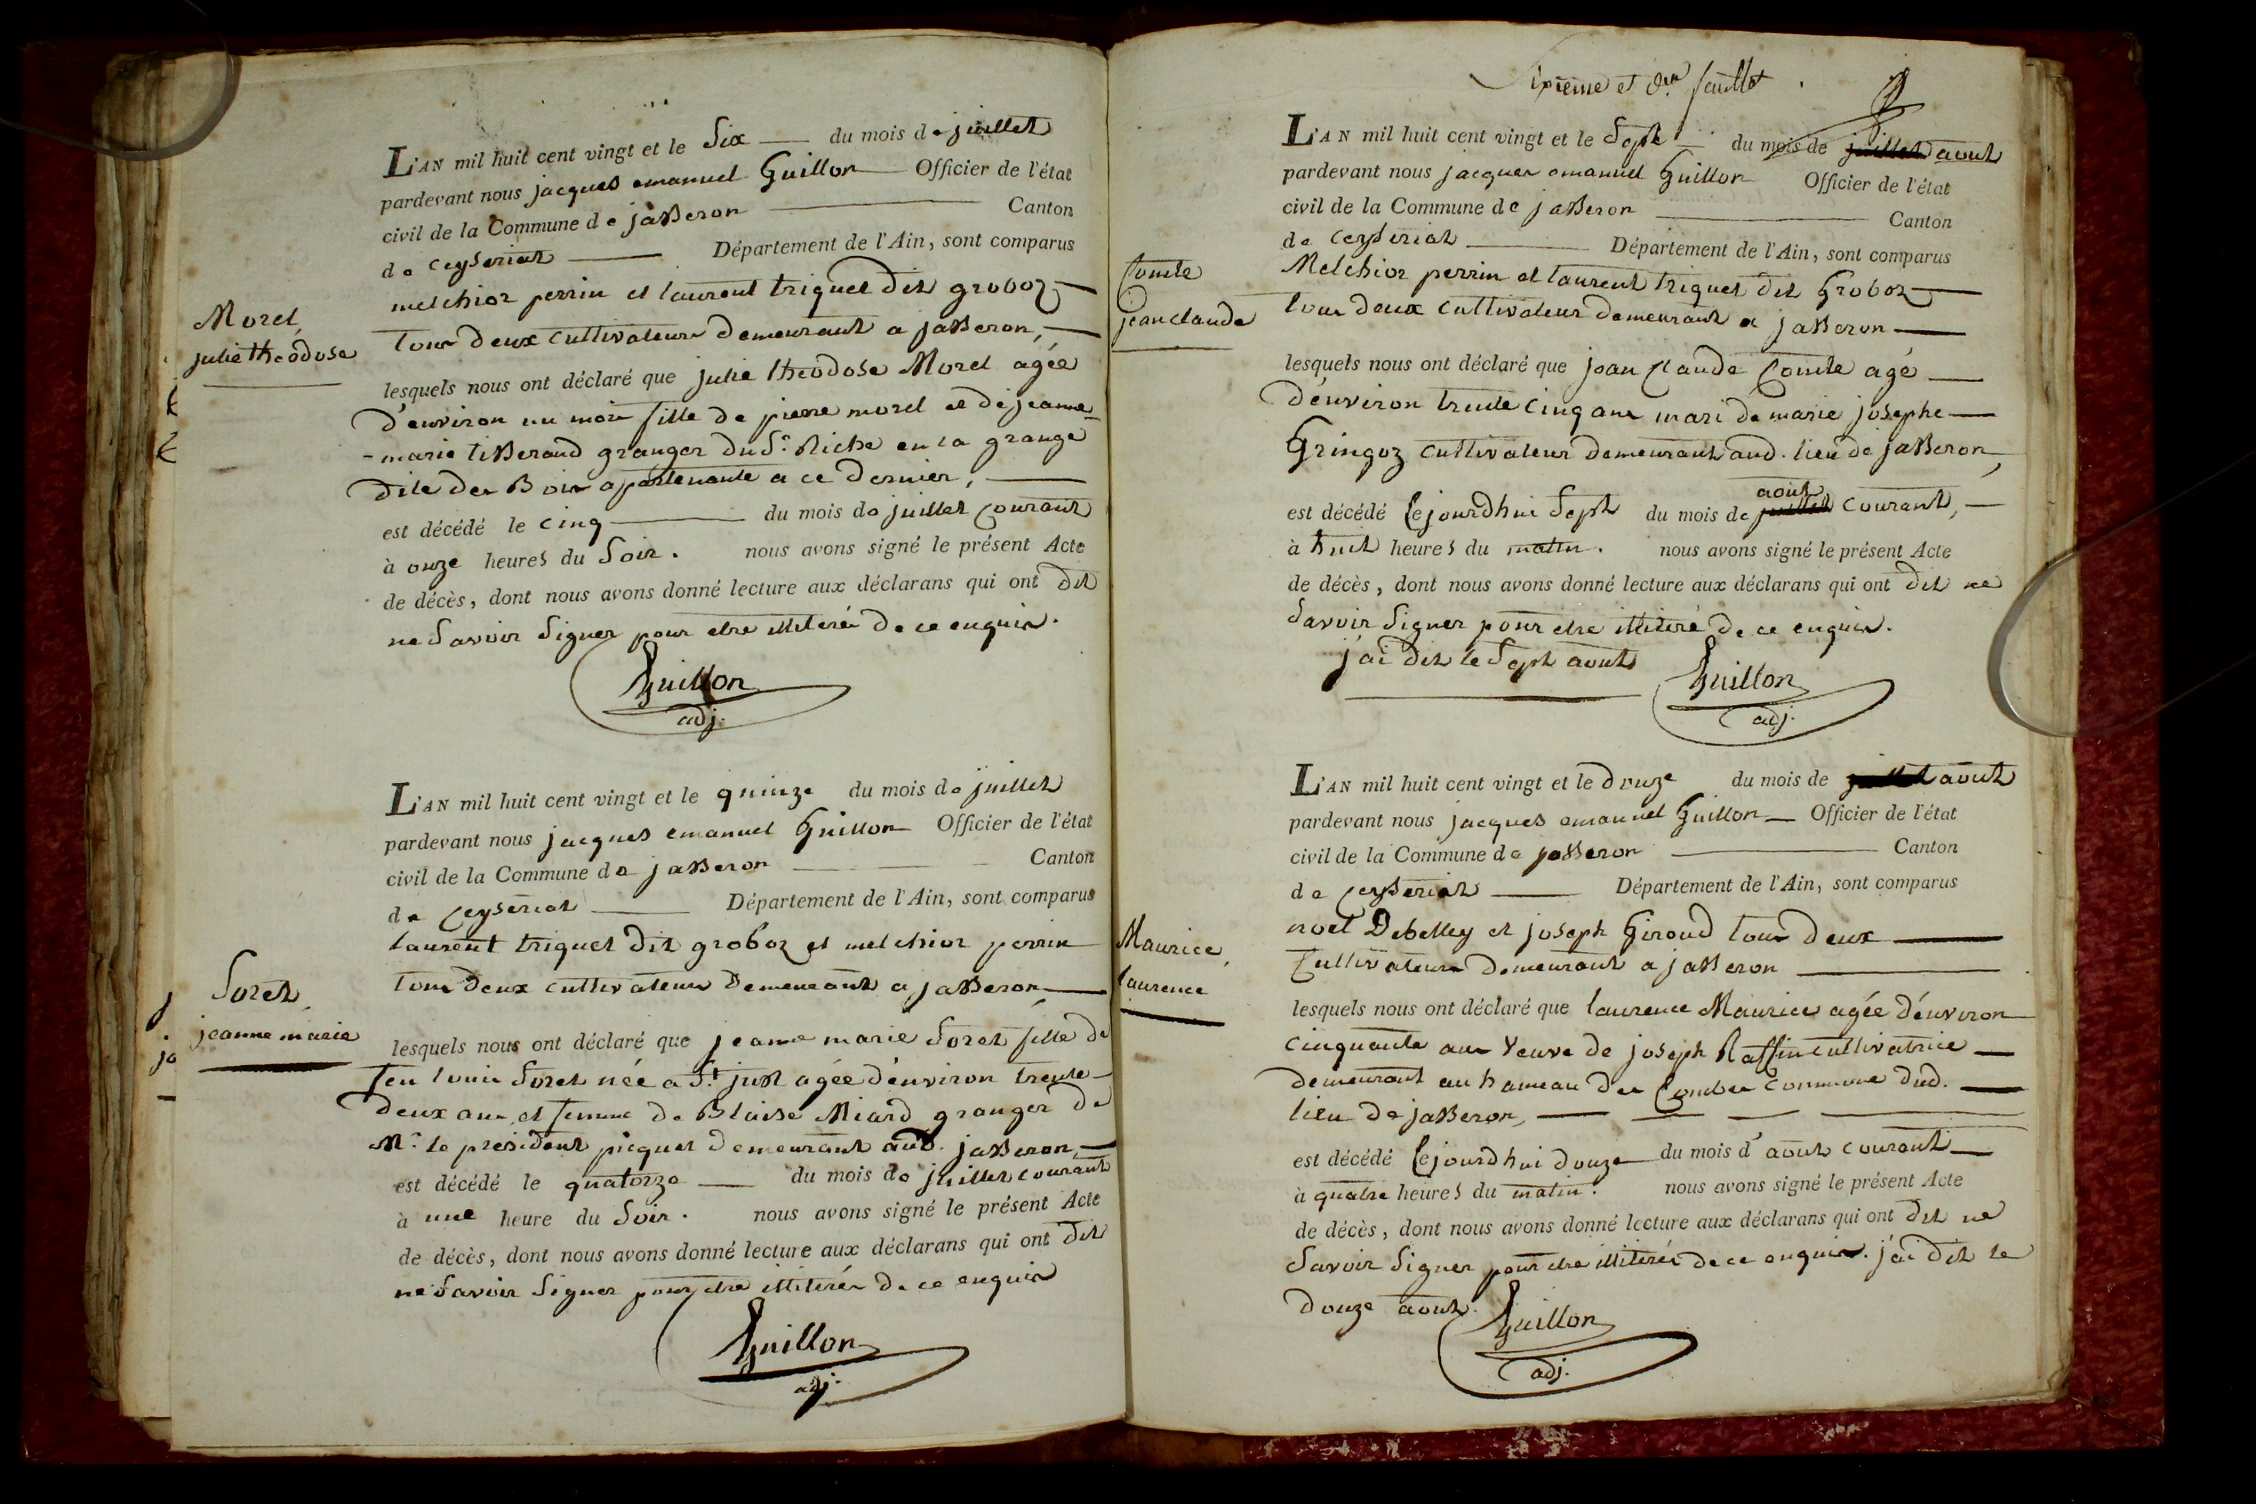 Morel
julie théodose
L'AN mil huit cent vingt et le Six du mois de juillet
pardevant nous jacques emanuel Guillon Officier de l'état
civil de la Commune de jasseron Canton
de Ceyseriat Département de l'Ain, sont comparus
melchior perrin et laurent triquet dit groboz
tous deux cultivateurs demeurant a jasseron,
lesquels nous ont déclaré que julie théodose Morel agée
d'environ un mois fille de pierre morel et de jeanne
-marie tisserand granger du Sr. Riche en la grange
dite des Bois apartenante a ce dernier,
est décédé le cinq du mois de juillet Courant
à onze heures du Soir. nous avons signé le présent Acte
de décès, dont nous avons donné lecture aux déclarans qui ont dit
ne Savoir Signer pour etre illiterés de ce enquis.
Guillon
adj.
Soret
jeanne marie
L'AN mil huit cent vingt et le quinze du mois de juillet
pardevant nous jacques emanuel Guillon Officier de l'état
civil de la Commune de jasseron Canton
de Ceyseriat Département de l'Ain, sont comparus
laurent triquet dit groboz et melchior perrin
tous deux cultivateurs demeurant a jasseron
lesquels nous ont déclaré que jeanne marie Soret fille de
feu louis Soret née a St. just agée d'environ trente
deux ans et femme de Blaise Miard granger de
Mr. le president picquet demeurant aud. jasseron,
est décédé le quatorze du mois de juillet courant
à une heure du Soir. nous avons signé le présent Acte
de décès, dont nous avons donné lecture aux déclarans qui ont dit
ne Savoir Signer pour etre illiterés de ce enquis
Guillon
adj.
Sixième et der. feuillet
Comte
jean claude
L'AN mil huit cent vingt et le Sept du mois de juillet aout
pardevant nous jacques emanuel Guillon Officier de l'état
civil de la Commune de jasseron Canton
de Ceyseriat Département de l'Ain, sont comparus
Melchior perrin et laurent triquet dit Groboz
tous deux Cultivateurs demeurant a jasseron
lesquels nous ont déclaré que jean Claude Comte agé
d'environ trente cinq ans mari de marie josephe
Gringoz cultivateur demeurant aud. lieu de jasseron,
aout
est décédé Cejourdhui Sept du mois de juillet Courant,
à huit heures du matin. nous avons signé le présent Acte
de décès, dont nous avons donné lecture aux déclarans qui ont dit ne
Savoir Signer pour etre illiteré de ce enquis.
j'ai dit le Sept aout
Guillon
adj.
Maurice,
laurence
L'AN mil huit cent vingt et le douze du mois de juillet aout
pardevant nous jacques emanuel Guillon Officier de l'état
civil de la Commune de jasseron Canton
de Ceyseriat Département de l'Ain, sont comparus
noel Debelley et joseph Giroud tous deux
Cultivateurs demeurant a jasseron
lesquels nous ont déclaré que laurence Maurice agée d'environ
cinquante ans Veuve de joseph Raffin cultivatrice
demeurant au hameau des Combes Commune dud.
lieu de jasseron,
est décédé Cejourdhui douze du mois d'aout courant
à quatre heures du matin. nous avons signé le présent Acte
de décès, dont nous avons donné lecture aux déclarans qui ont dit ne
Savoir Signer pour etre illiterés de ce enquis. j'ai dit le
douze aout.
Guillon
adj.